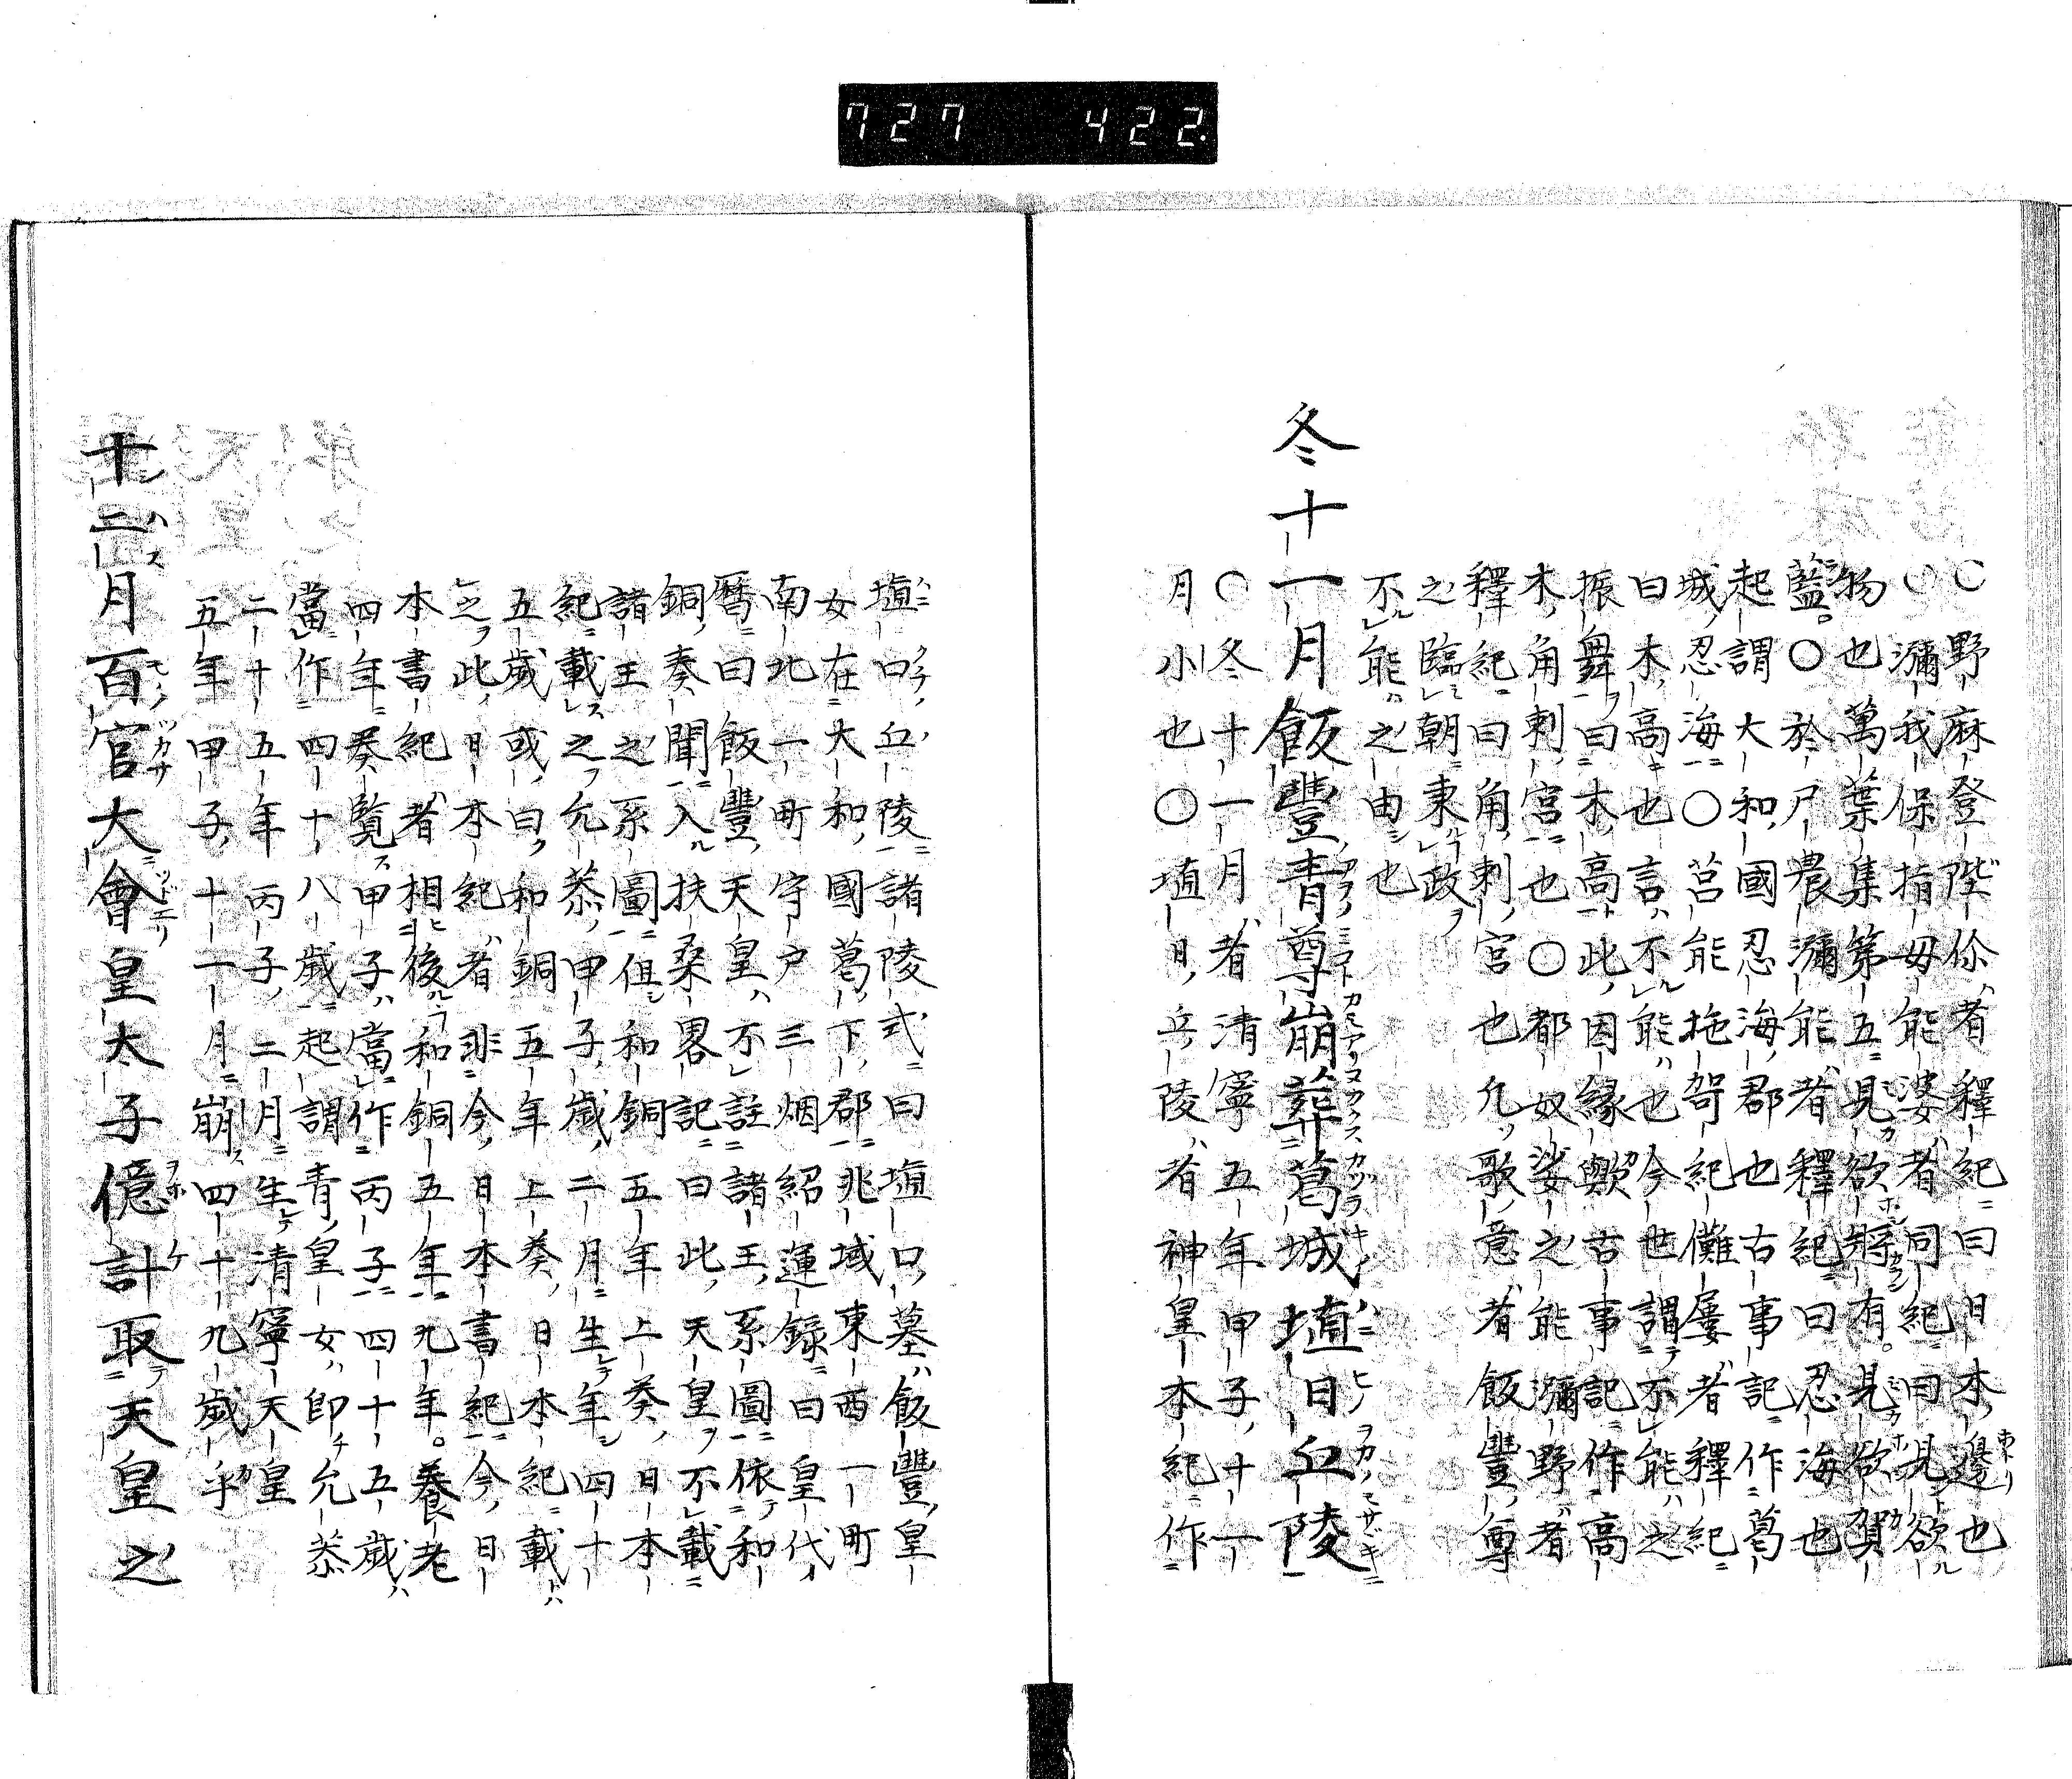 727 422.
〇野麻登陛伱者釋紀曰日本邊也
〇瀰我保指母能婆者同紀曰見欲
物也萬葉集第五見欲將有見欲賀
藍〇於尸農瀰能者釋紀曰忍海也
起謂大和國忍海郡也古事記作葛
城忍海〇莒能拖哿紀儺屢者釋紀
曰木高也言不能也今世謂不能之
振舞曰木高此因縁歟古事記作高
木角刺宮也〇都奴娑之能瀰野者
釋紀曰角刺宮也凡歌意者飯豐尊
之臨朝秉政
不能之由也
冬十一月飯豐青尊崩葬葛城埴口丘陵
〇冬十一月者清寧五年甲子十一
月小也〇埴日丘陵者神皇本紀作
埴口丘陵諸陵式曰埴口墓飯豐皇
女在大和國葛下郡兆域東西一町
南北一町守戸三烟紹運録曰皇代
暦曰飯豐天皇不註諸王系圖依和
銅奏聞入扶桑畧記曰此天皇不載
諸王之系圖但和銅五年上奏日本
紀載之允恭甲子歲二月生年四十
五歲或曰和銅五年上奏日本紀載
之此日本紀者非今日本書紀今日
本書紀者相後和銅五年九年養老
四年奏覽甲子當作丙子四十五歲
當作四十八歲起謂青皇女即允恭
二十五年丙子二月生清寧天皇
五年甲子十一月崩四十九歲乎
十二月百官大會皇太子億計取天皇之